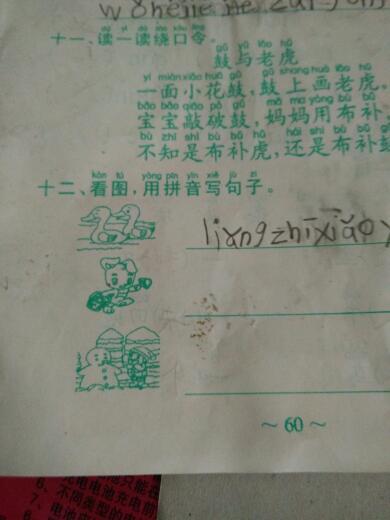 wǒ hé jiě jie zài
十一、读一读绕口令。
gǔ yǔ lǎo hǔ
鼓与老虎
yí miàn xiǎo huā gǔ gǔ shang huà lǎo hǔ
一面小花鼓，鼓上画老虎。
bǎo bao qiāo pò gǔ mā ma yòng bù bǔ
宝宝敲破鼓，妈妈用布补。
bù zhī shì bù bǔ hǔ hái shì bù bǔ
不知是布补虎，还是布补
kàn tú yòng pīn yīn xiě jù zi
十二、看图，用拼音写句子。
liǎng zhī xiǎo
～ 60 ～
只能在
充电电池充电前
6、不同类型的电
7、电池应
8